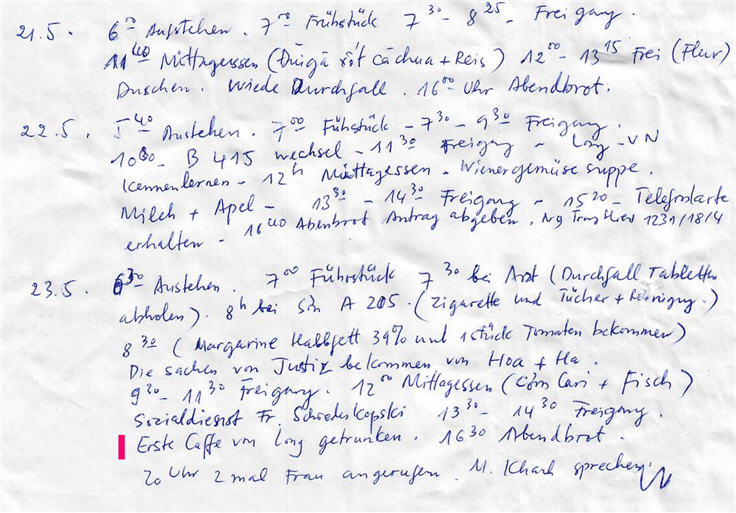 21.5. 6⁰⁰ Aufstehen. 7⁰⁰ Frühstück 7³⁰ - 8²⁵ - Freigang.
11⁴⁰ Mittagessen ( xốt cà chua + Reis) 12⁰⁰ - 13¹⁵ Frei (Flur)
Duschen. Wiede Durchfall. 16⁰⁰ Uhr Abendbrot.
22.5. 5⁴⁰ Austehen. 7⁰⁰ Fühstück - 7³⁰ - 9³⁰ Freigang.
10⁰⁰ - B 415 wechsel - 11³⁰ Freigang - Long - VN
Kennenlernen - 12ʰ Mittagessen - Wienergemüse suppe.
Milch + Apel - 13³⁰ - 14³⁰ Freigang - 15²⁰ - Telefonkarte
erhalten - 16⁴⁰ Abenbrot Antrag abgeben. 1231/18/4
23.5. 6³⁰ Austehen. 7⁰⁰ Führstück 7³⁰ bei Arzt (Durchfall Tabletten
abholen). 8ʰ bei Sơn A 205. (Zigarette und Tücher + Reinigung.)
8³⁰ (Margarine Halbfett 39% und 1 stück Tomaten bekommen)
Die sachen von Justiz bekommen von Hoa + Ha.
9³⁰ - 11³⁰ Freigang. 12⁰⁰ Mittagessen (Cơm Cari + Fisch)
Sozialdienst Fr. 13³⁰ - 14³⁰ Freigang.
Erste Caffe von Long getrunken. 16³⁰ Abendbrot.
20 Uhr 2 mal Frau angerufen. M. Khanh sprechen.